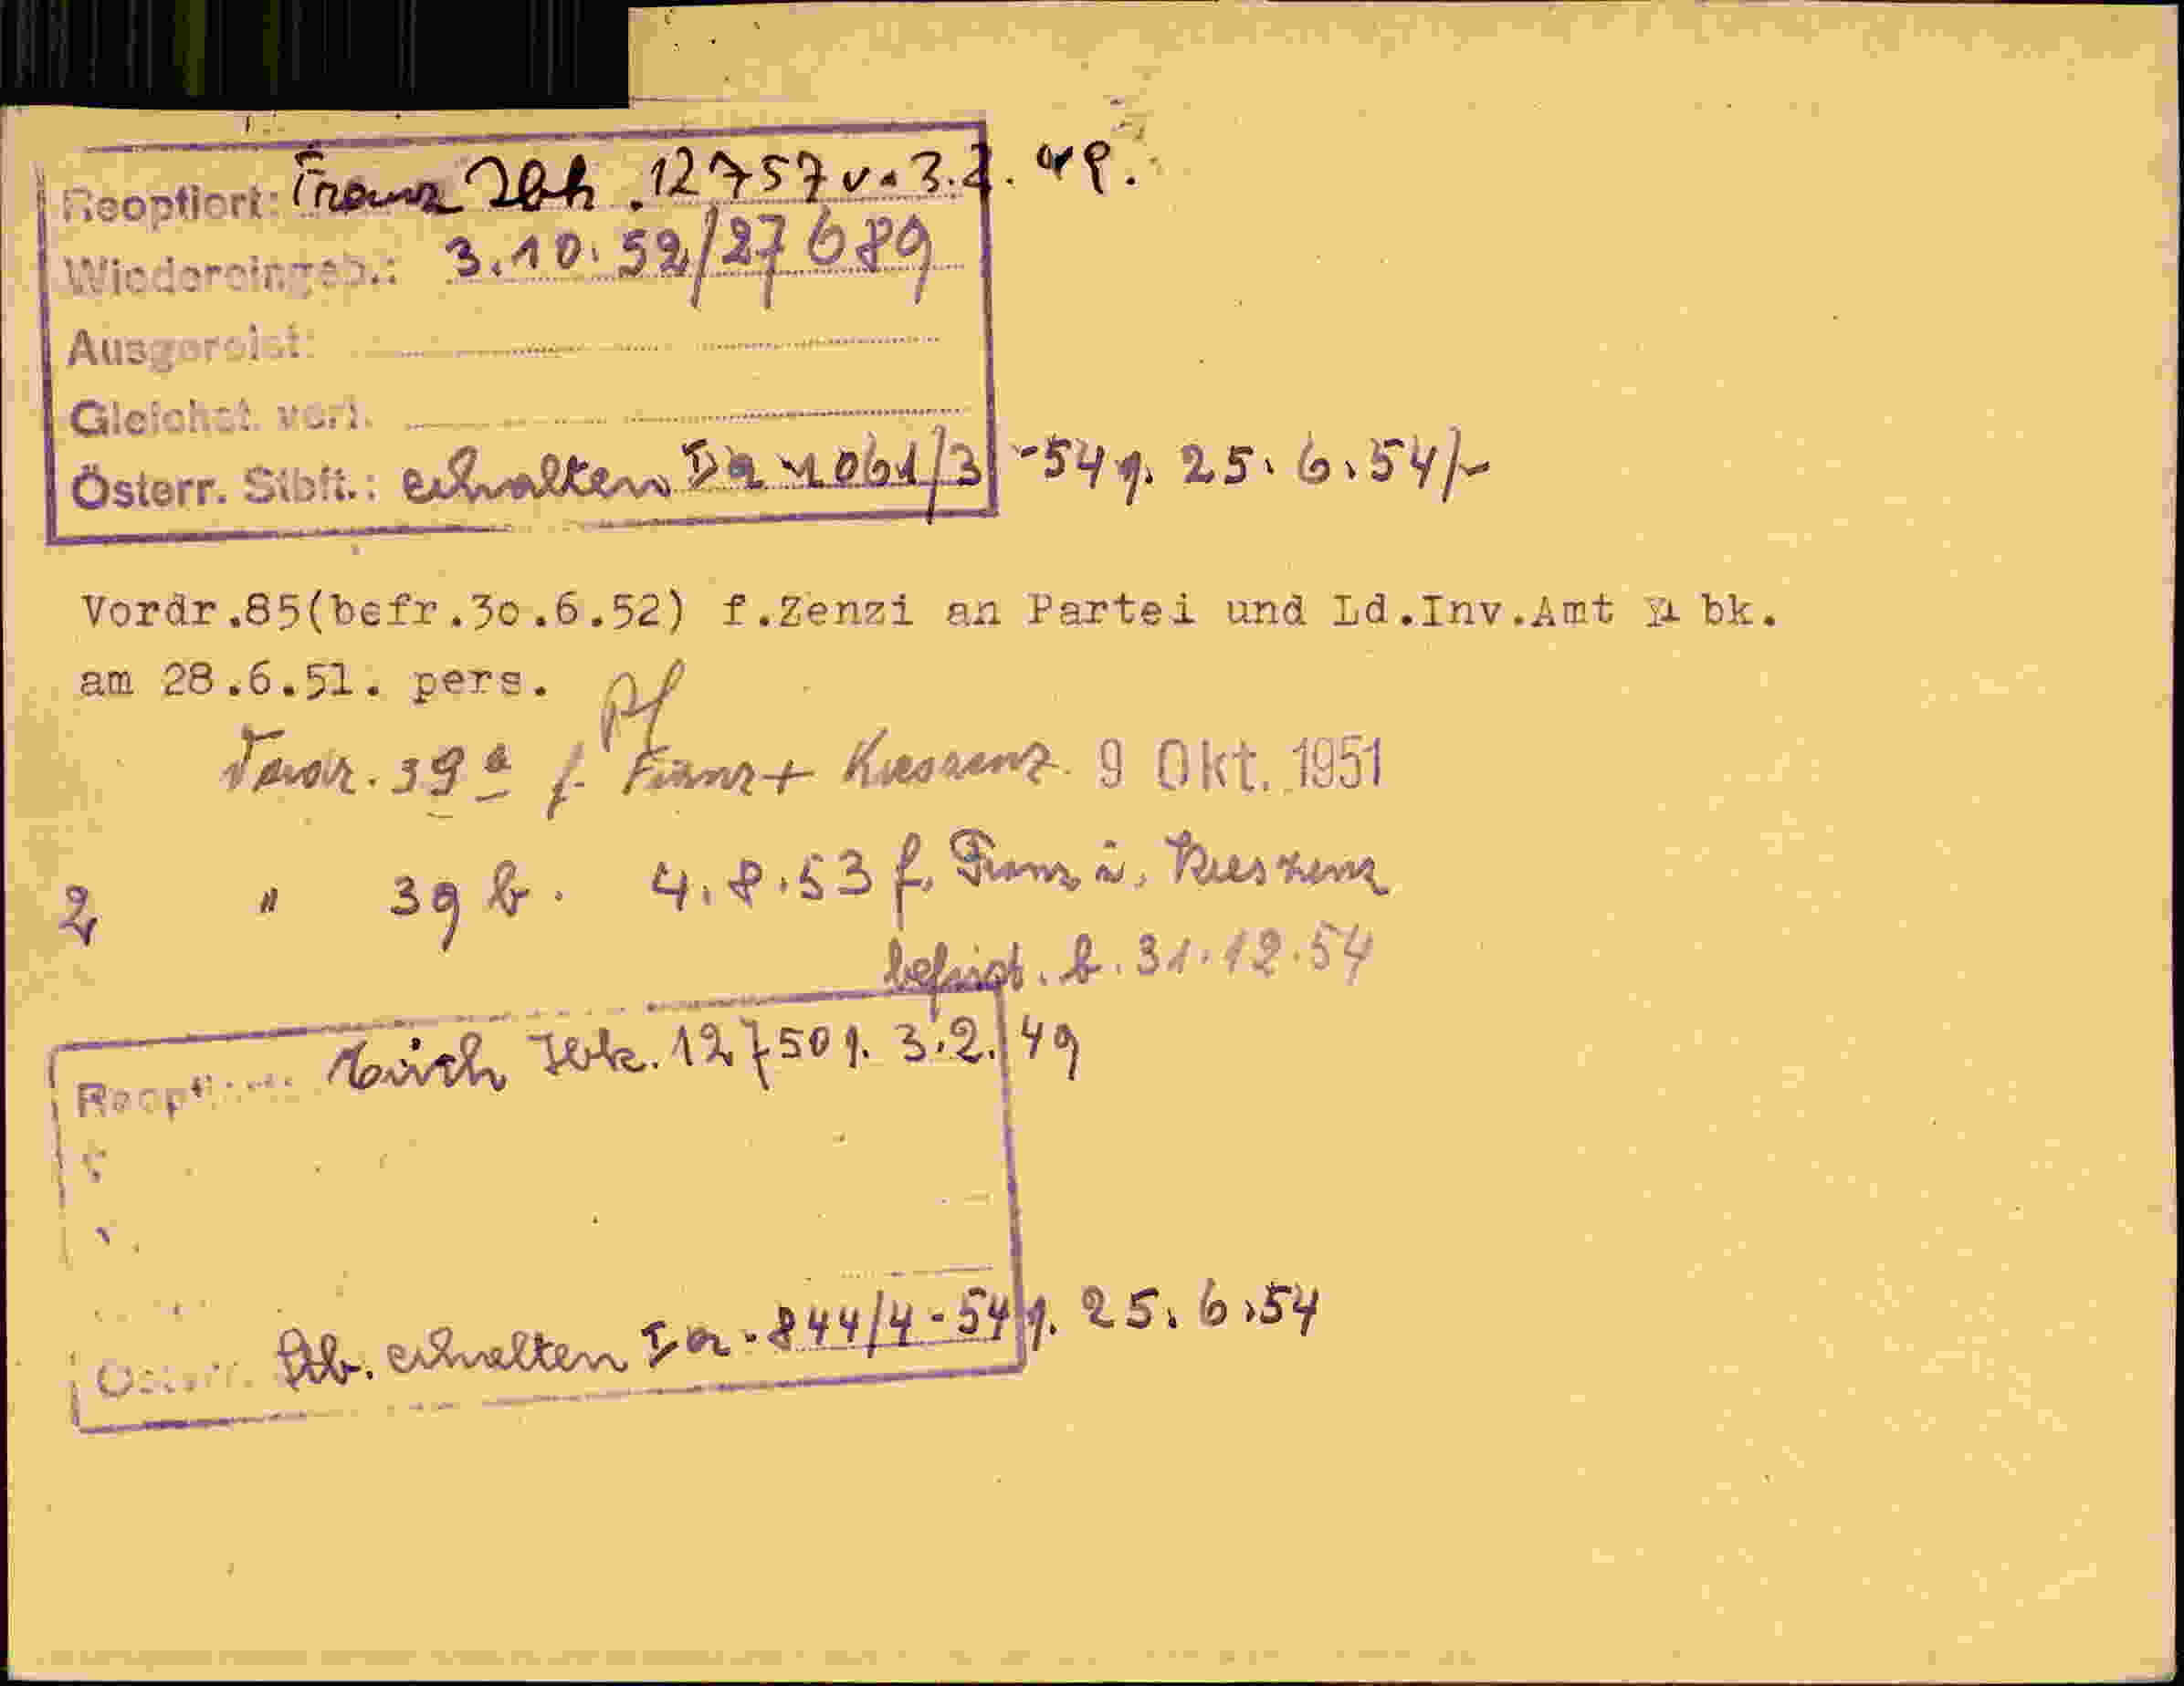 Reoptiert: Franz Ibk. 12757 v. 3.2. 49.
Wiedereingeb.: 3.10.52/27689
Ausgereist:
Gleichst. verl.
Österr. Stbft.: erhalten Ia 1061/3 -54 v. 25.6.54/
Vordr.85(befr.30.6.52) f.Zenzi an Partei und Ld.Inv.Amt bk.
am 28.6.51. pers.
Vordr. 39a f. Franz + Kreszenz 9 Okt. 1951
2 " 39 b. 4.8.53 f. Franz u. Kreszenz
befrist. b. 31.12.54
Reoptiert: Ibk. 12750 v. 3.2.49
Österr. Stb. erhalten Ia - 844/4 - 54 v. 25.6.54